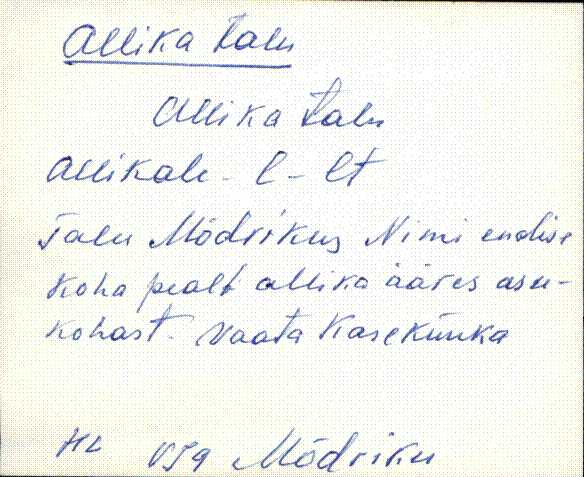 Allika talu
Allika talu
Allikale - l - lt
Talu Mõdrikus Nimi endise
koha pealt allika ääres asu-
kohast. Vaata Kasekünka
VJg Mõdriku